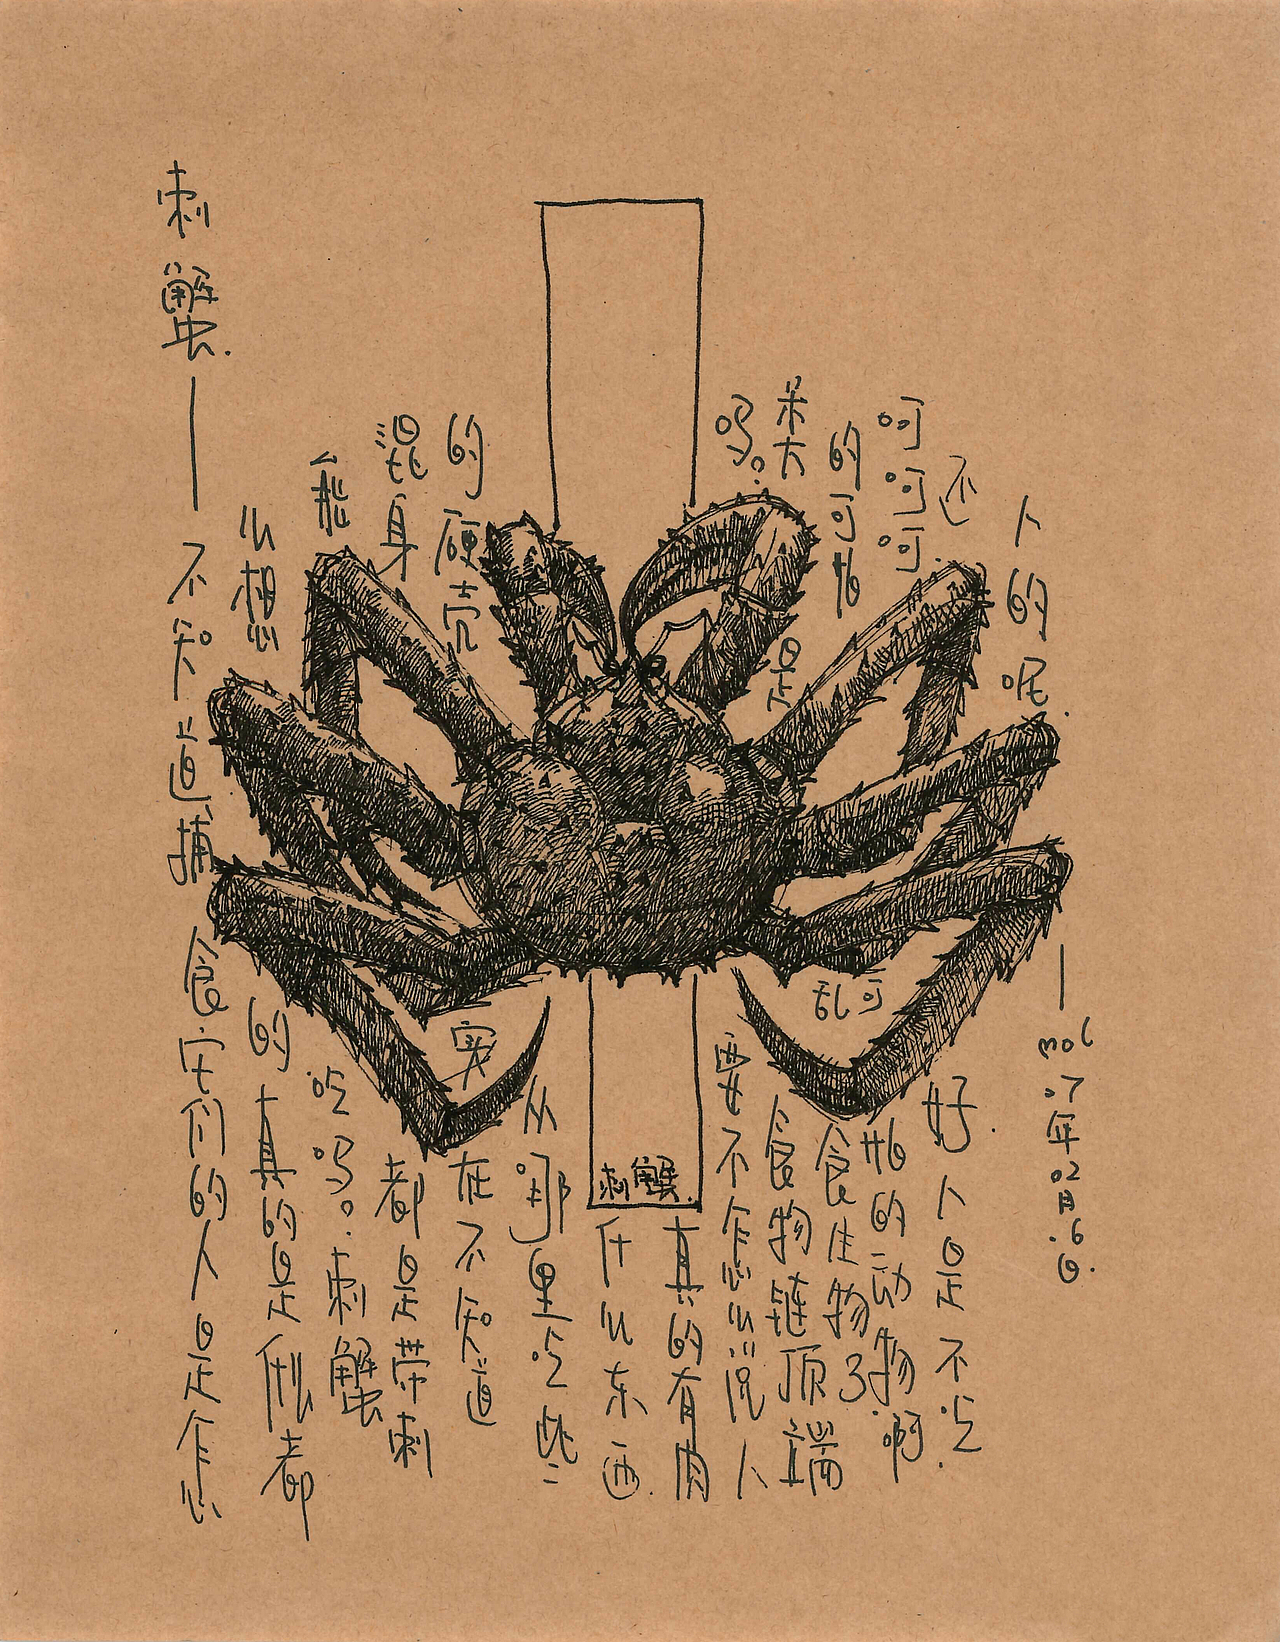 刺蟹.——不知道捕食它们的人是怎
么想的真的是什么都
能吃吗。刺蟹
混身都是带刺
的硬壳实在不知道
从哪里吃些
什么东西.
真的有肉
吗。要不怎么说人
类是食物链顶端
的可怕乱食生物了
呵呵呵.可怕的动物啊.
还好.人是不吃
人的呢.——mol 07年02月.6日.
刺蟹.